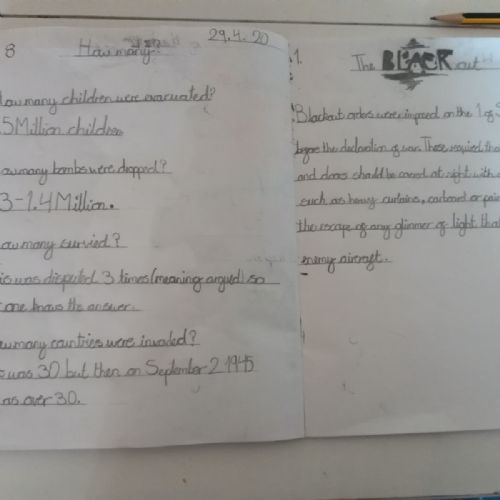 8
How many?
29.4.20
How many children were evacuated?
.5 Million children
How many bombs were dropped?
3-1.4 Million.
How many survied?
is was disputed 3 times (meaning argued) so
one knows the answer.
How many countries were invaded?
was 30 but then on September 2 1945
as over 30.
1.
The BLACK out
Blackout orders were imposed on the 1 of S
before the declaration of war. These required tha
and doors should be covered at night with
such as heavy curtains, carboard or pain
the escape of any glimmer of light that
enemy aircraft.